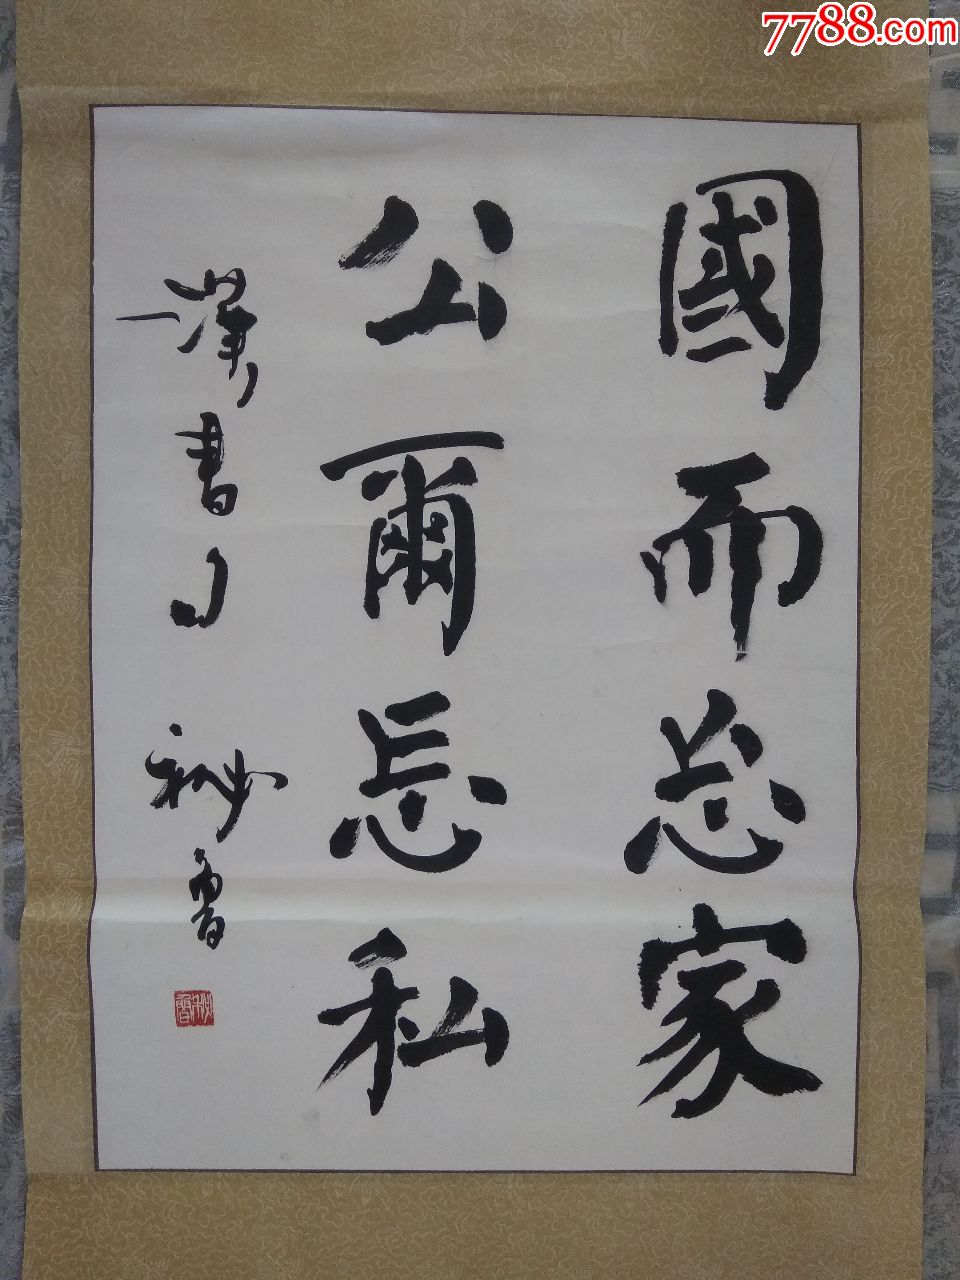 7788.com
國而忘家
公爾忘私
漢書句